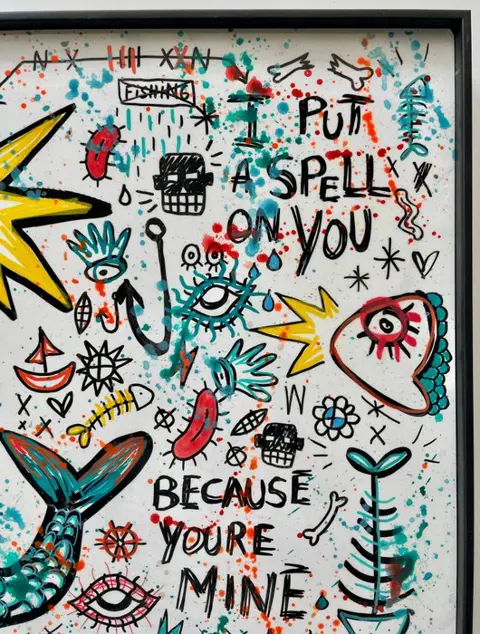 N X HHI XXN
FISHING
I PUT
A SPELL
ON YOU
W
BECAUSE
YOURE
MINE